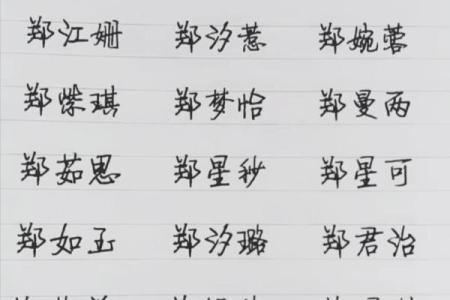 郑江姗 郑汐惹 郑婉蓉
郑紫琪 郑梦恰 郑曼两
郑茹思 郑星秒 郑星可
郑如玉 郑汐璐 郑君治